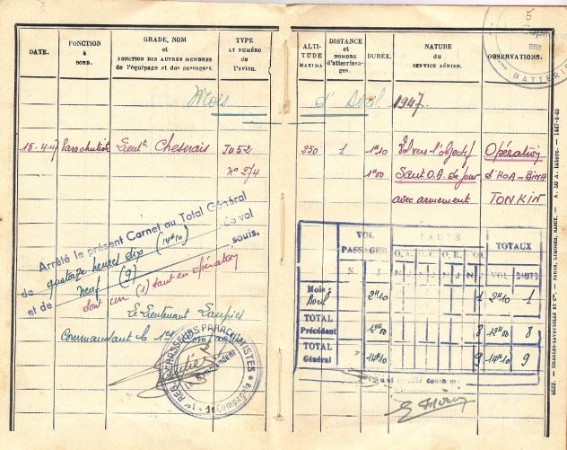 DATE.
FONCTION
A
BORD.
GRADE, NOM
ET
FONCTION DES AUTRES MEMBRES
de l'équipage et des passagers.
TYPE
ET NUMÉRO
de l'avion.
ALTI-
TUDE
MAXIMA
DISTANCE
et
NOMBRE
d'atterris-
sages.
DURÉE.
NATURE
DU
SERVICE AÉRIEN.
OBSERVATIONS.
5
BATTERIE
Mois d'Avril 1947.
16.4.47 Parachutiste Lieut^t Chesnais JU52 250 1 1h10 Vol vers l'objectif Opération
N° 574 1h00 Saut O.A. de jour d'HOA-BINH
avec armement TONKIN
Arrêté le présent Carnet au Total Général
de quatorze heures dix (14h10) de vol
et de neuf (9) sauts.
dont un (1) saut en opération
Le Lieutenant
Commandant la 1ère Compagnie
PARACHUTISTES
1ère Compagnie
VOL
PASSAGER
SAUTS
TOTAUX
N. J. N J VOL SAUTS
Mois:
Avril 2h10 1 2h10 1
TOTAL
Précédent 12h00 8 12h00 8
TOTAL
Général 14h10 9 14h10 9